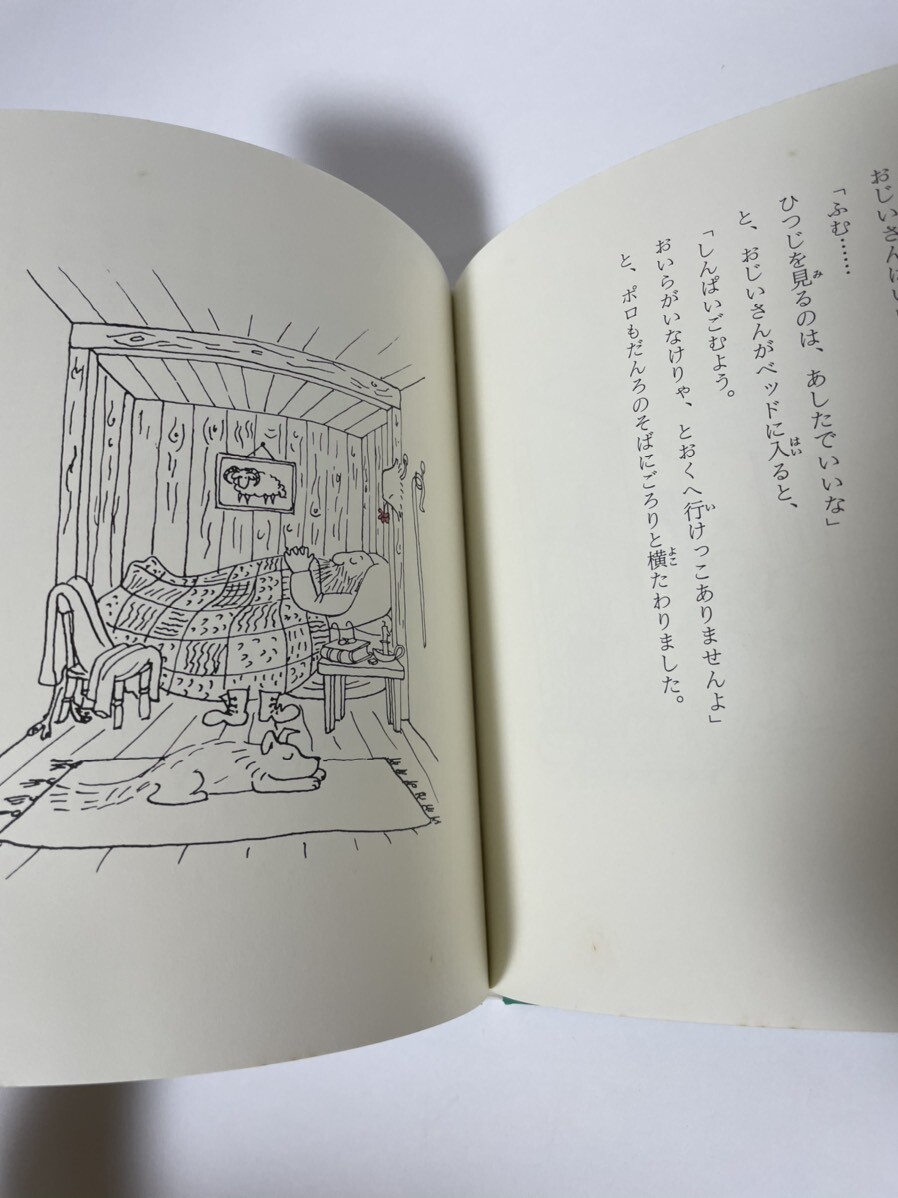 おじいさんは
「ふむ……
ひつじを見るのは、あしたでいいな」
と、おじいさんがベッドに入ると、
「しんぱいごむよう。
おいらがいなけりゃ、とおくへ行けっこありませんよ」
と、ポロもだんろのそばにごろりと横たわりました。